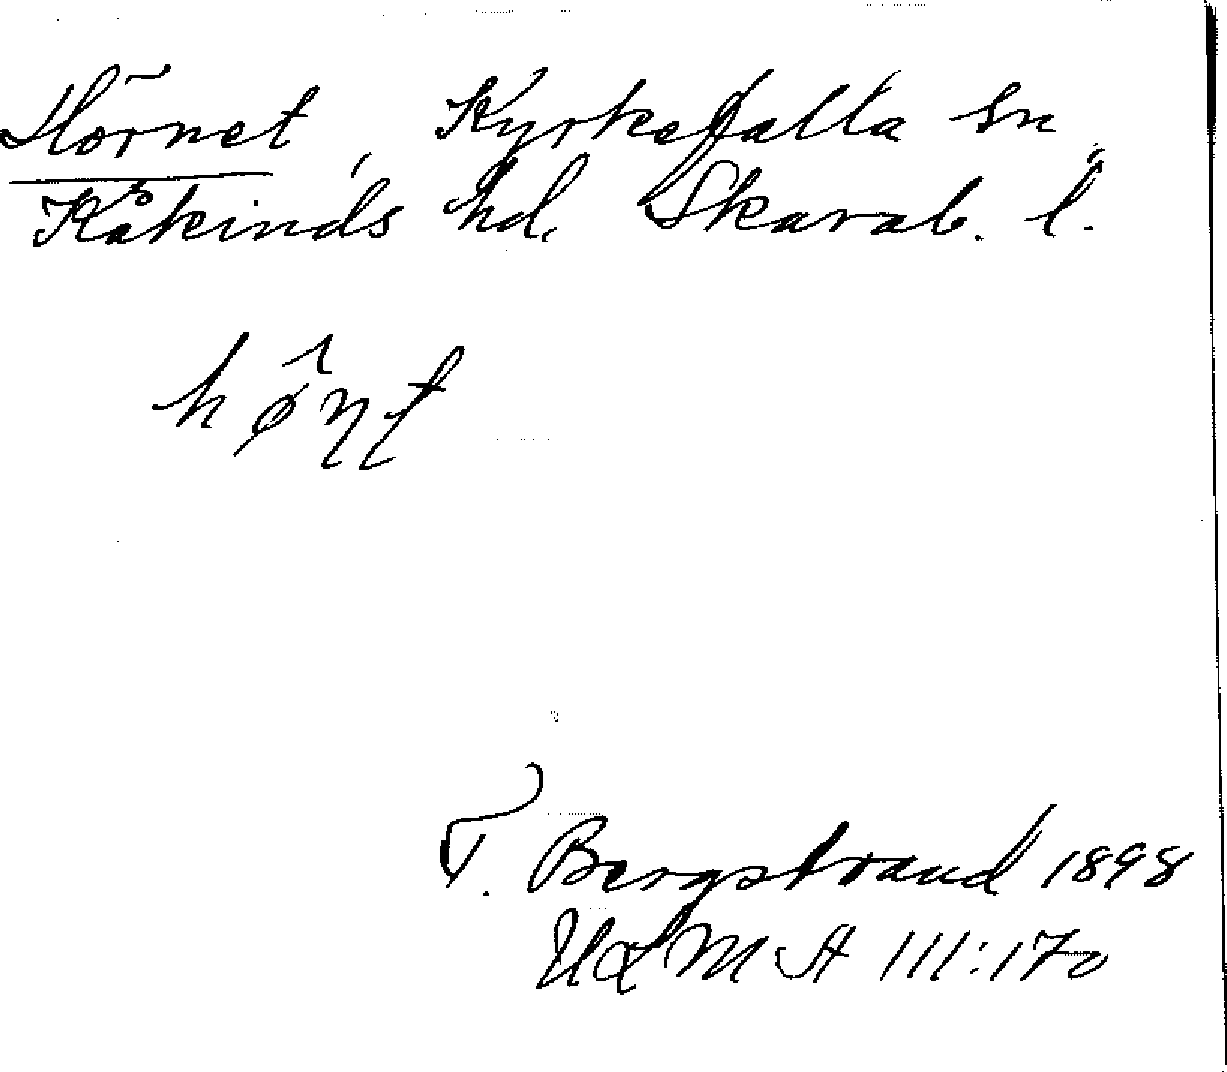 Hörnet, Kyrkefalla sn,
Kåkinds hd. Skarab. l.
T. Bergstrand 1898
ULMA 111:170